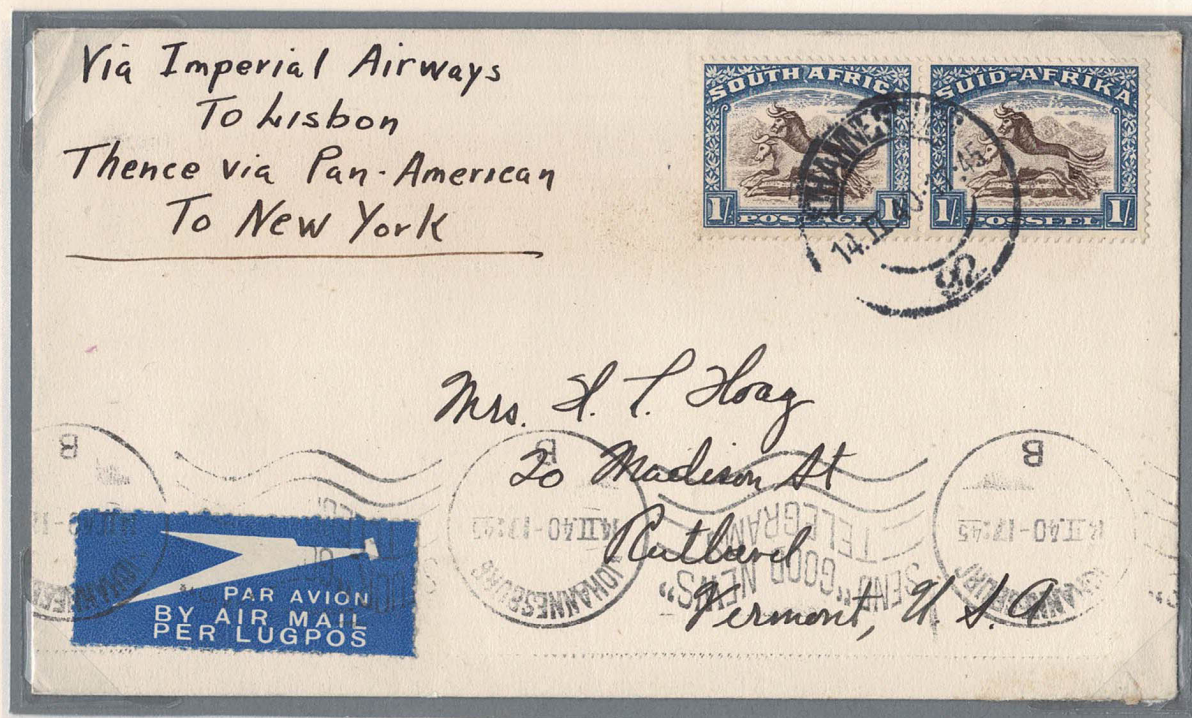 Via Imperial Airways
To Lisbon
Thence via Pan-American
To New York
SOUTH AFRICA
1/- POSTAGE 1/-
SUID-AFRIKA
1/- POSSEEL 1/-
JOHANNESBURG
14.II.40
Mrs. H. T. Hoag
20 Madison St
Rutland
Vermont, U.S.A
B
14.II.40-17:45
JOHANNESBURG
B
14.II.40-17:45
JOHANNESBURG
B
SEND "GOOD NEWS"
TELEGRAMS
PAR AVION
BY AIR MAIL
PER LUGPOS